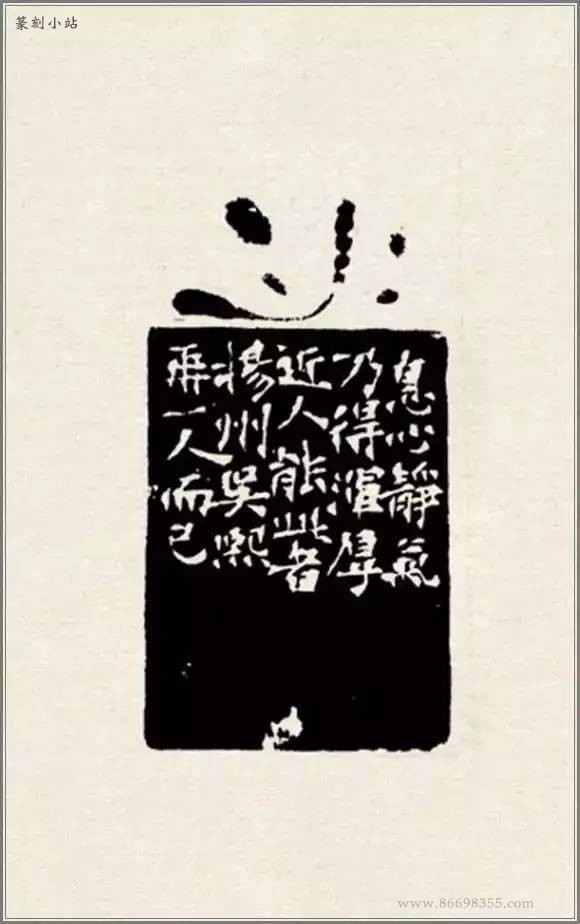 篆刻小站
息心靜氣
乃得渾厚
近人能此者
揚州吳熙
再一人而已
www.86698355.com